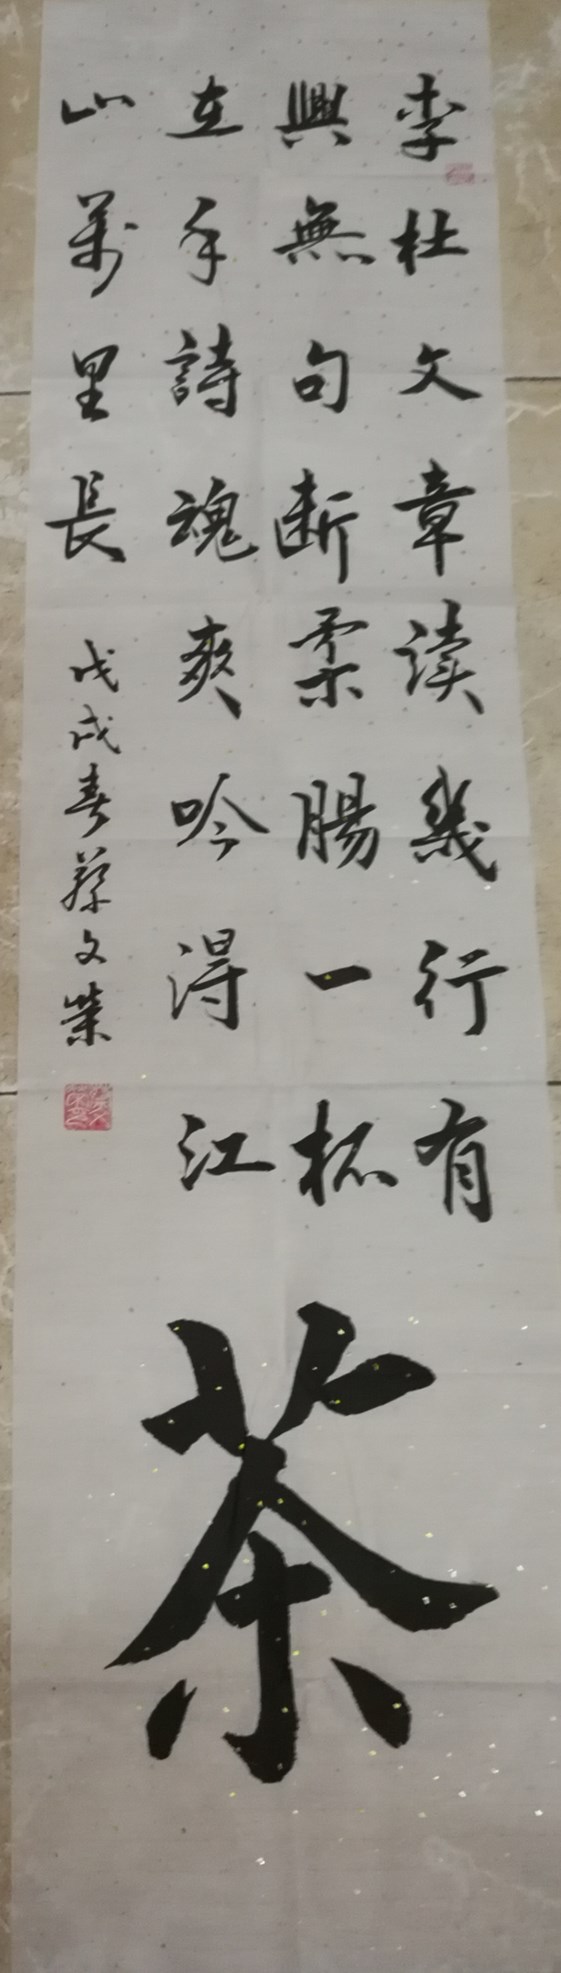 李杜文章读幾行有
興無句断柔腸一杯
在手詩魂爽吟得江
山萬里長
戊戌春蔡文榮
茶